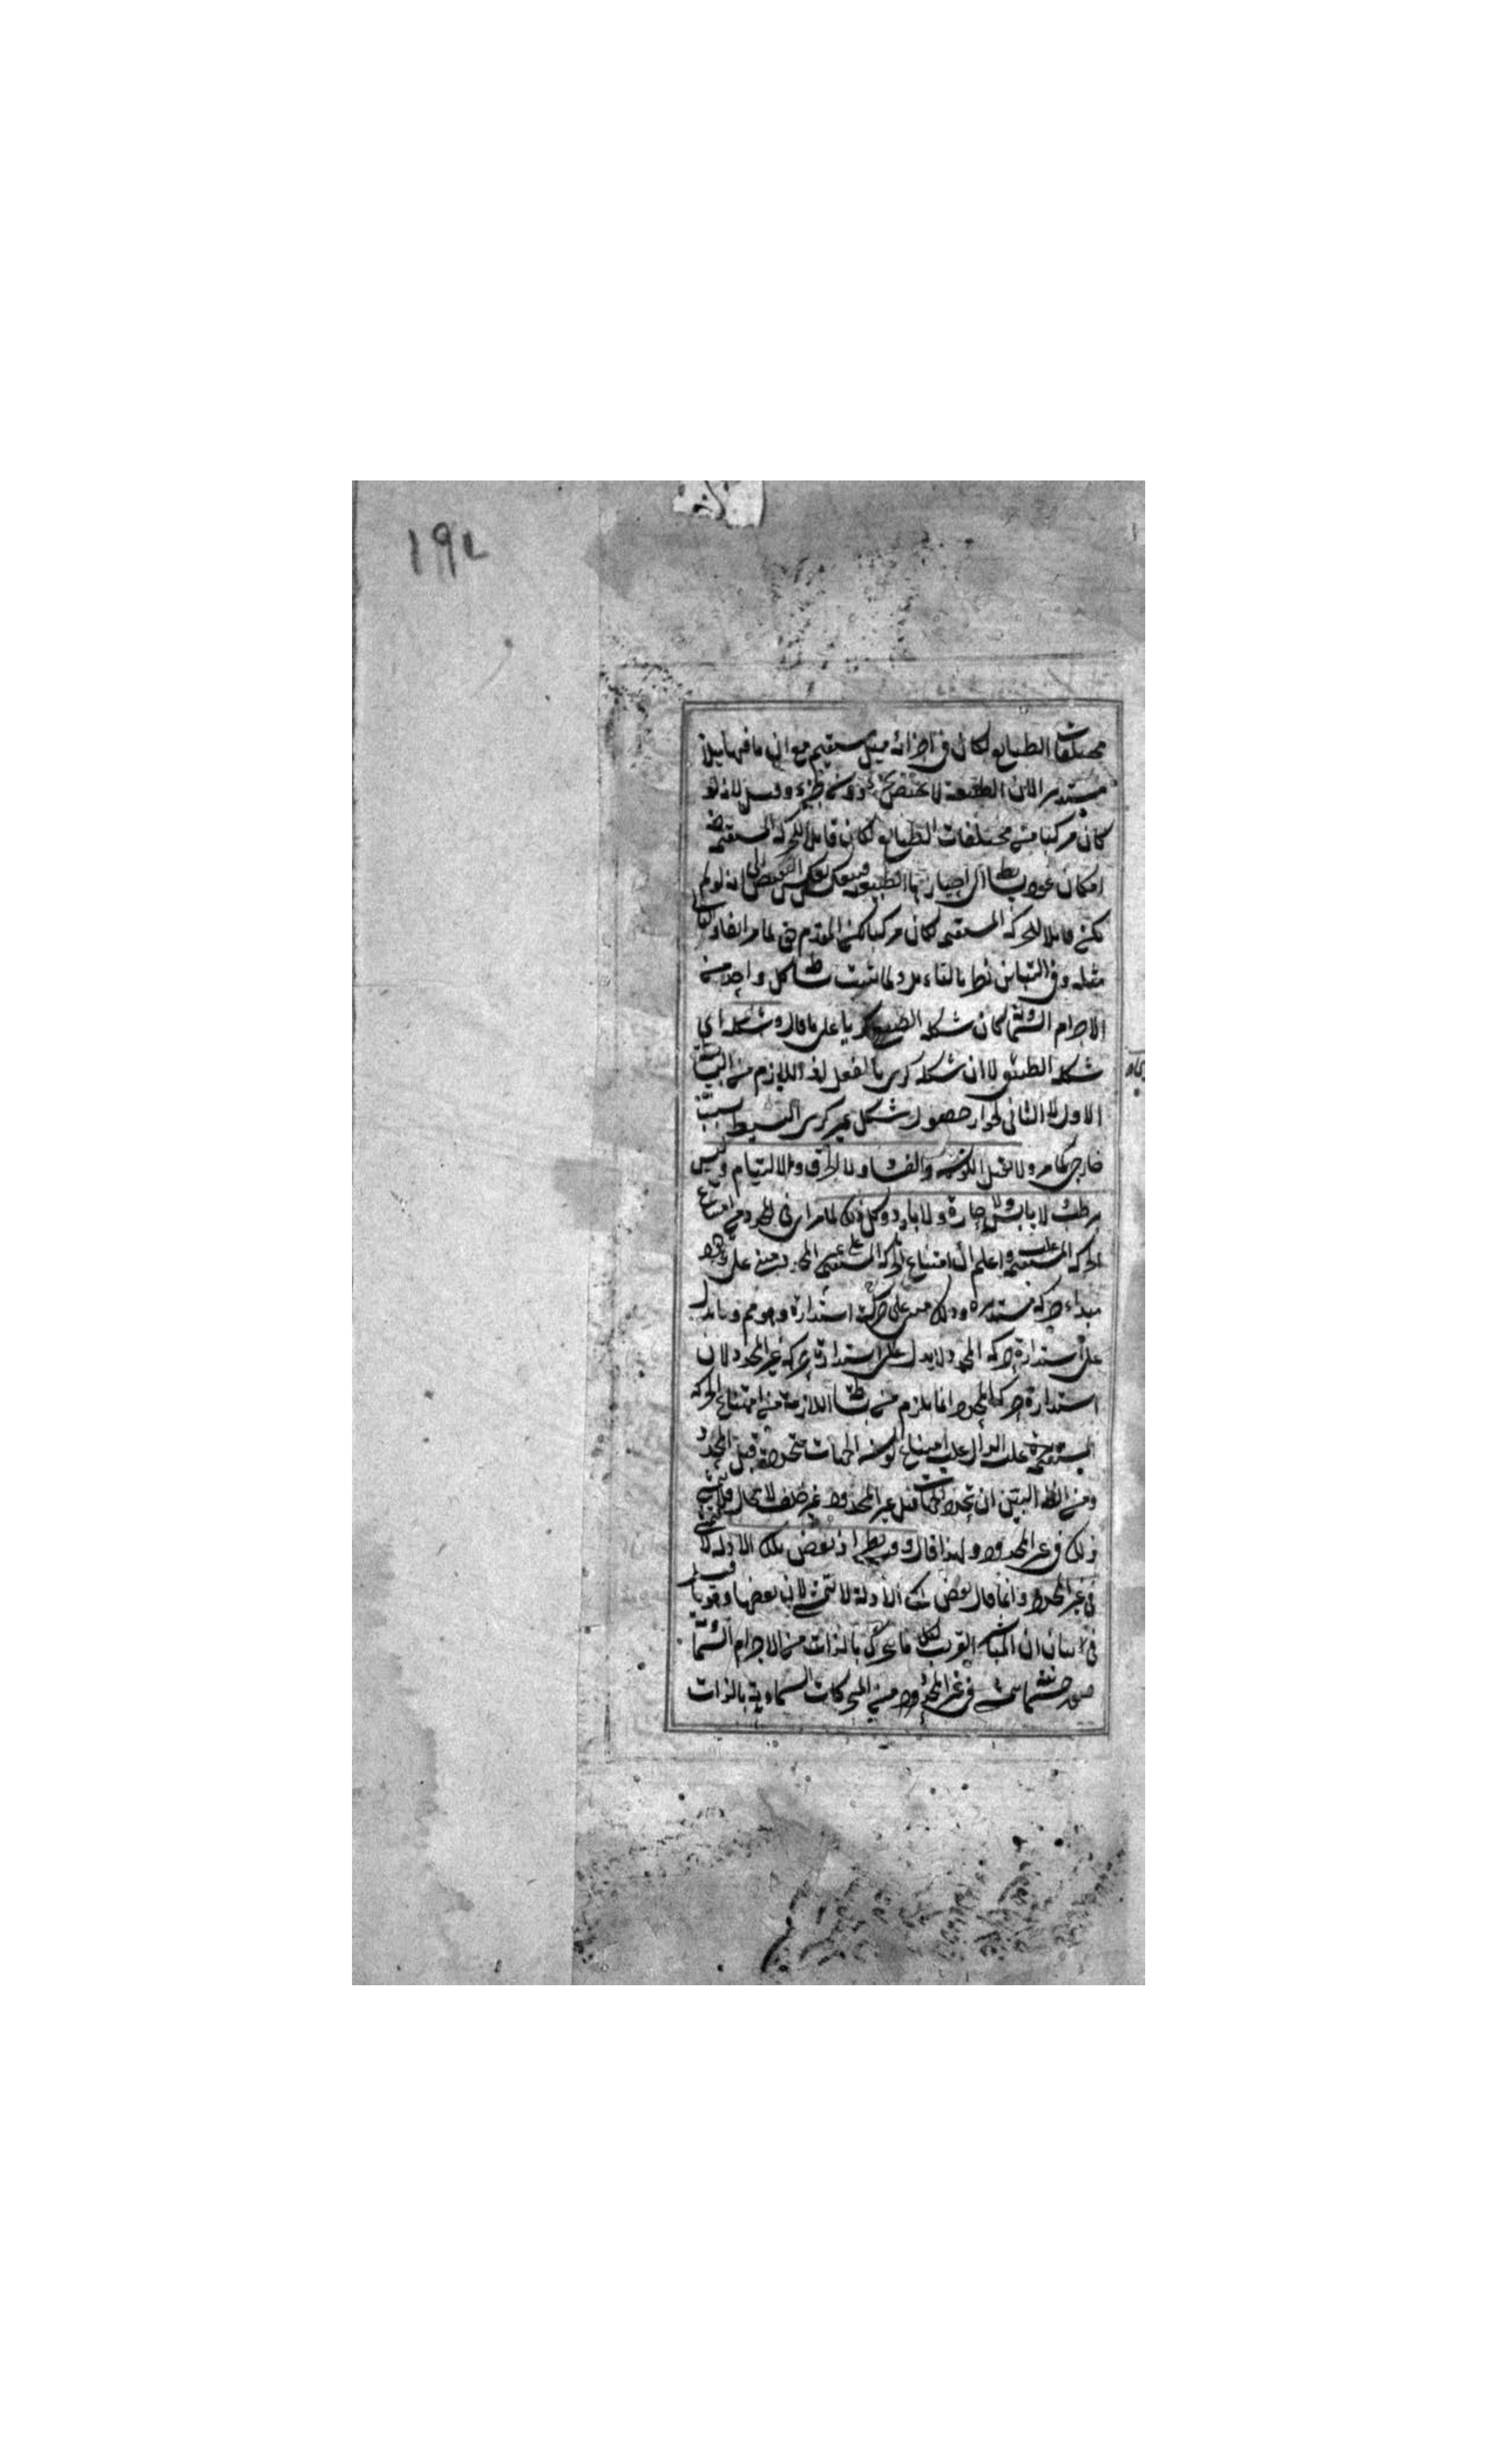 ١٩٤
مختلفات الطبايع لكان في اجزائه ميل مستقيم مع ان ما فيها ميلا
مستديرا لان الطبيعة لا تختص بجزء دون جزء وقيل لانه لو
كان مركبا من مختلفات الطبايع لكان قابلا للحركة المستقيمة
امكان عود بسايطه الى احيازها الطبيعية وينعكس بعكس النقيض الى انه لو لم
يكن قابلا للحركة المستقيمة لكان مركبا لكن المقدم حق لما مر انفا والتالي
مثله وفي التباين نظر بالتاء مر ولما ثبت بساطة كل واحد من
الاجرام السماوية كان شكله الطبيعي كريا على ما قال وشكله اى
شكله الطبيعي لا ان شكله كرى بالفعل لذ اللازم من البساطة
الاول لا الثاني لجواز حصول شكل غير كرى البسيط بسبب
خارجي كما مر ولا تقبل الكون والفساد ولا الخرق والالتيام وليس
برطب لا يابس ولا حارة ولا بارد وكل ذلك لما مر اى في المحدد من امتناع
الحركة المستقيمة عليه واعلم ان امتناع الحركة المستقيمة على غير المحدد مبنى على وجود
مبداء حركة مستديرة وذلك مبنى على حركته استدارة وهو مم وما يدل
على استدارة حركة المحدد لا يدل على استدارة حركة غير المحدد لان
استدارة حركة المحدد انما يلزم من بساطته اللازمة من امتناع الحركة
المستقيمة عليه الدال عليه امتناع كون الجهات متحددة قبل المحدد
ومن الظه البين ان تحدد الجهات قبل غير المحدد غير خلف لا محال فلا يتمشى
ذلك في غير المحدد ولهذا قال وفيه نظر اذ بعض تلك الادلة لا يتمشى
في غير المحدد وانما قال بعض تلك الادلة لا تتمشى لان بعضها وهو ما قيل
في بيان ان المباشر القريب لكل ما يتحرك بالذات من الاجرام السماوية
صورة جسمانية في غير المحدد من المتحركات السماوية بالذات